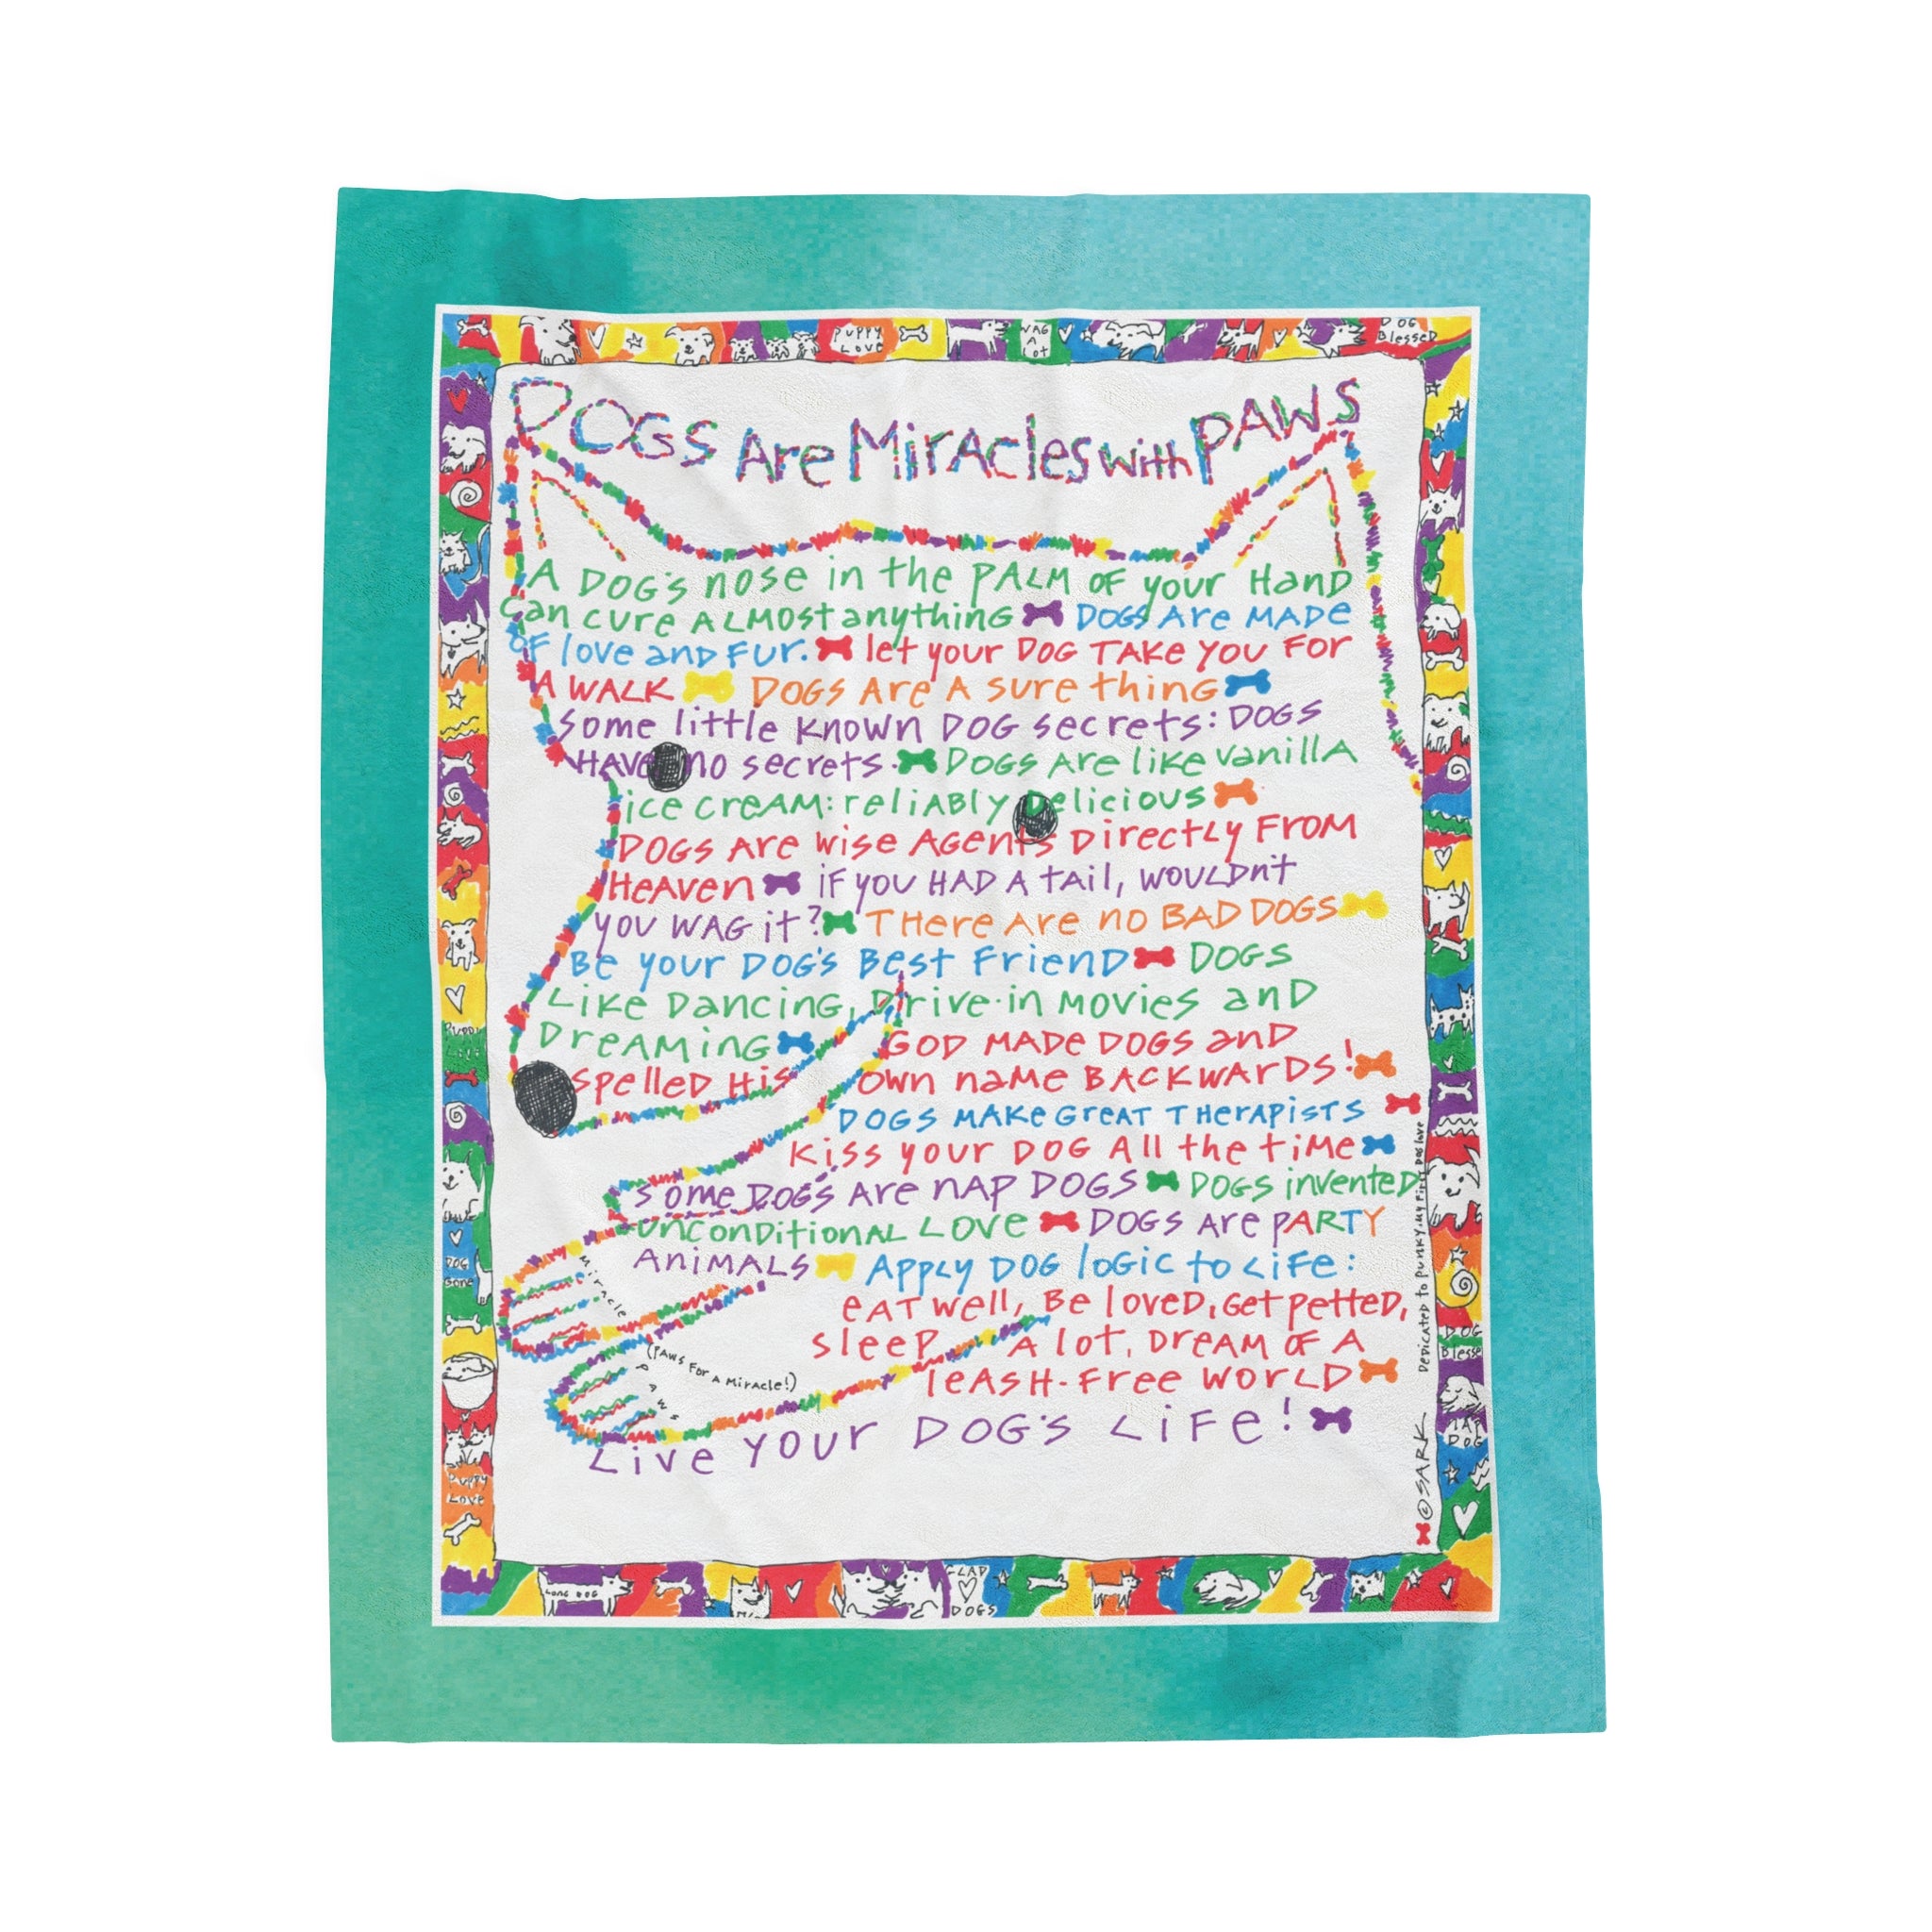 PUPPY LOVE
WAG A LOT
DOG Blessed
DOGS Are MirAcles with PAWS
A DOG'S nose in the PALM OF your HanD
Can cure ALMost anything DOGS Are MADE
OF love anD Fur. let your DOG TAKe YOU FOr
A WALK DOGS Are A sure thing
Some little known DOG secrets: DOGS
HAVe no secrets. DOGS Are like vanillA
ice creAM: reliABLy Delicious
DOGS Are wise Agents Directly FroM
HeAven iF you HAD A tAil, woulDn't
you WAG it? THere Are no BAD DOGS
Be your DOG'S Best FrienD DOGS
Like DAncing, Drive-in Movies anD
DreAMing GOD MADe DOGS anD
spelleD His own naMe BACKWArDS!
DOGS MAKe GreAT THerApisTS
Kiss your DOG All the tiMe
some DOG'S Are nAp DOGS DOGS inventeD
unconDitionAL LOVe DOGS Are pARTY
AniMALS Apply DOG loGic to LiFe:
eAT well, Be loveD, Get petteD,
sleep A lot, DreAM OF A
leASH-Free WOrLD
Live your DOG'S LiFe!
Miracle
(PAWS For A Miracle!)
PAWS
DeDicateD to Punky, My First DOG love
© SARK
PUPPY LOVE
DOG Gone
Puppy Love
DOG Blesse
LAP DOG
LONG DOG
DOGS